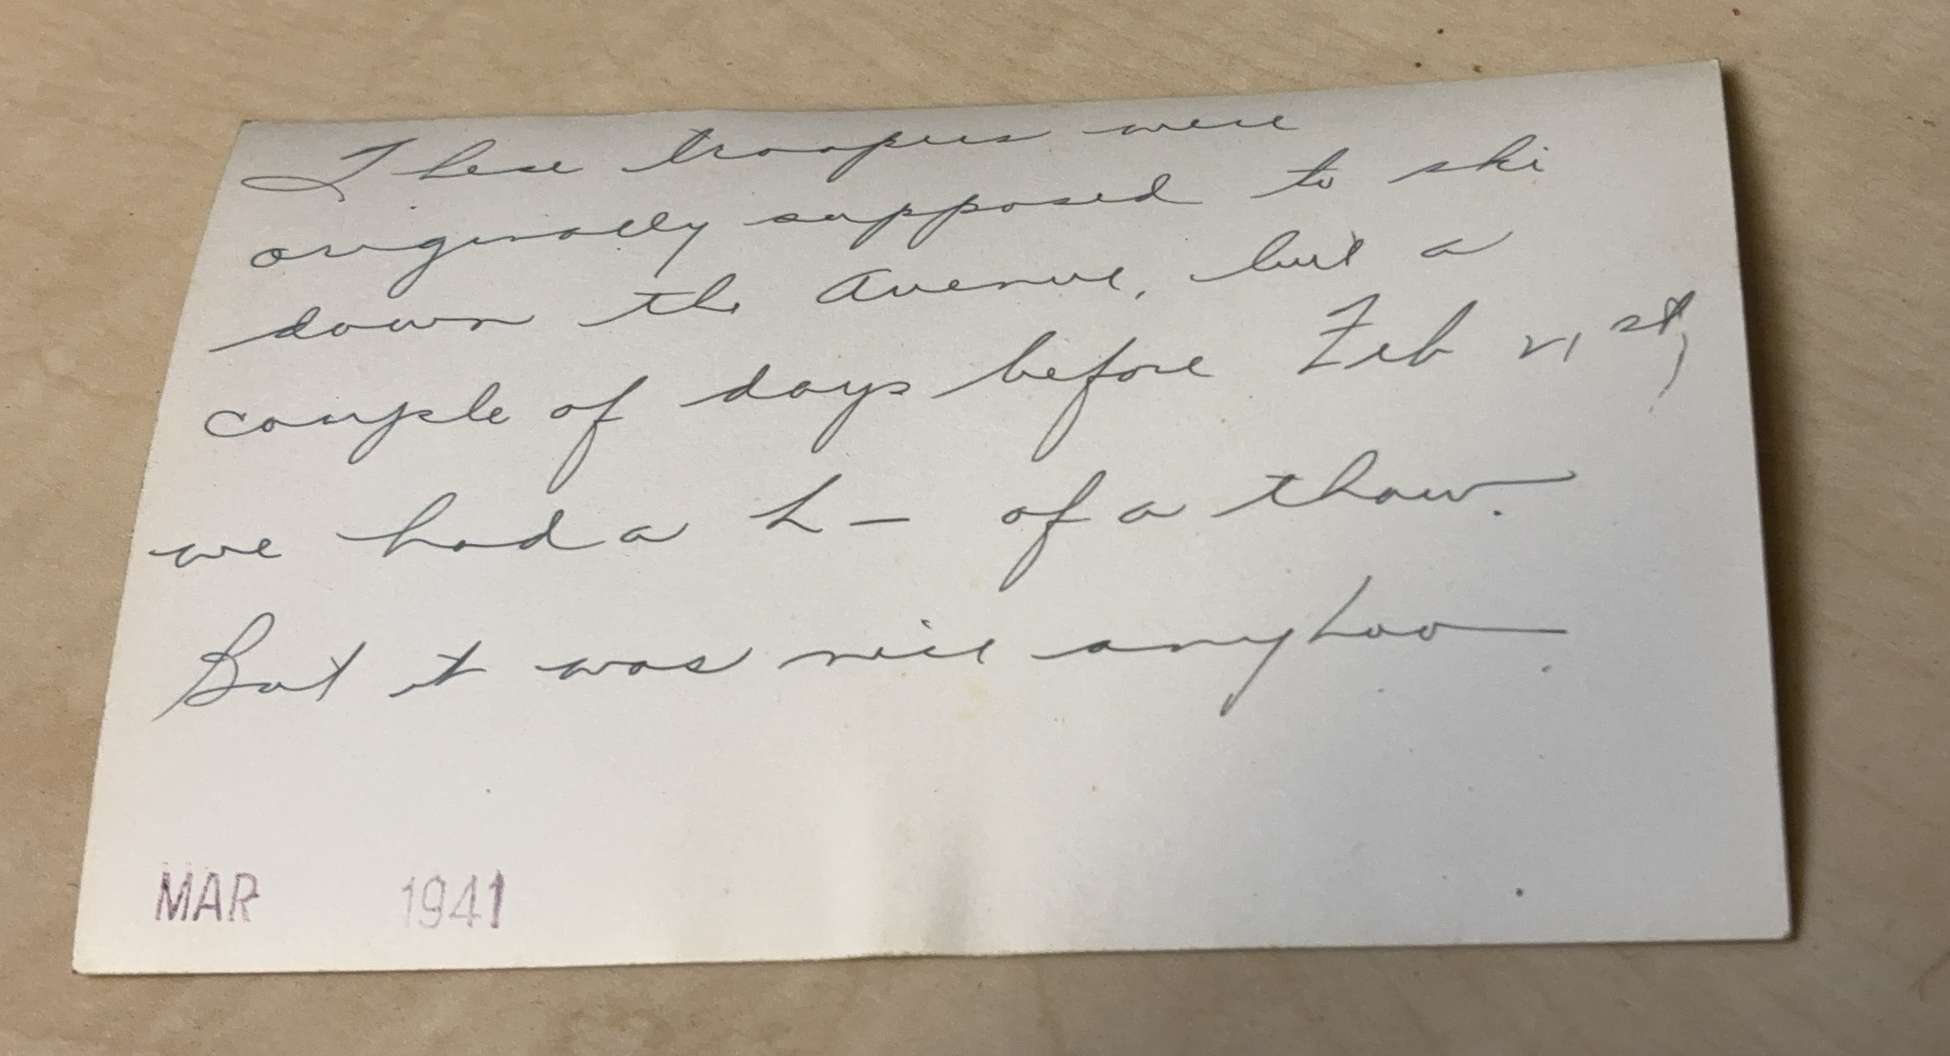 These troopers were
originally supposed to ski
down the Avenue, but a
couple of days before Feb 21st,
we had a h— of a thaw.
But it was nice anyhoo
MAR 1941